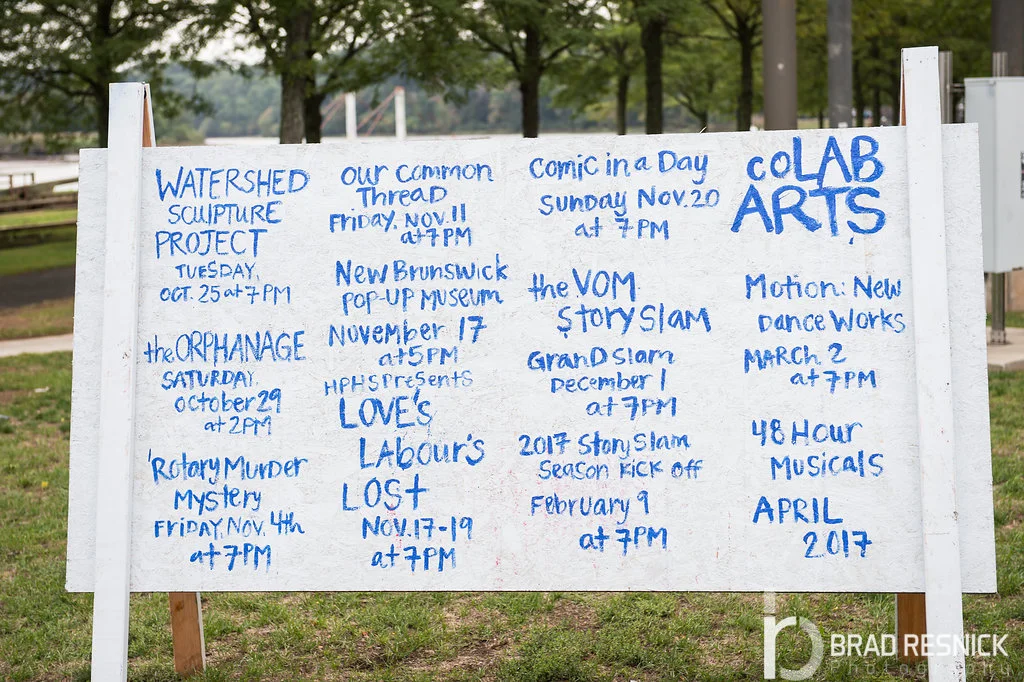 WATERSHED
SCULPTURE
PROJECT
TUESDAY,
OCT. 25 at 7 PM
the ORPHANAGE
SATURDAY,
October 29
at 2PM
'Rotary Murder
Mystery
FRIDAY, NOV. 4th
at 7PM
our common
Thread
Friday, Nov. 11
at 7PM
New Brunswick
POP-UP Museum
November 17
at 5PM
HPHS Presents
LOVE's
LABour's
LOST
NOV. 17-19
at 7PM
comic in a Day
Sunday Nov. 20
at 7PM
the VOM
Story Slam
Grand Slam
December 1
at 7PM
2017 Story Slam
Season Kick off
February 9
at 7PM
coLAB
ARTS
Motion: New
Dance Works
MARCH 2
at 7PM
48 Hour
Musicals
APRIL
2017
BRAD RESNICK
Photography